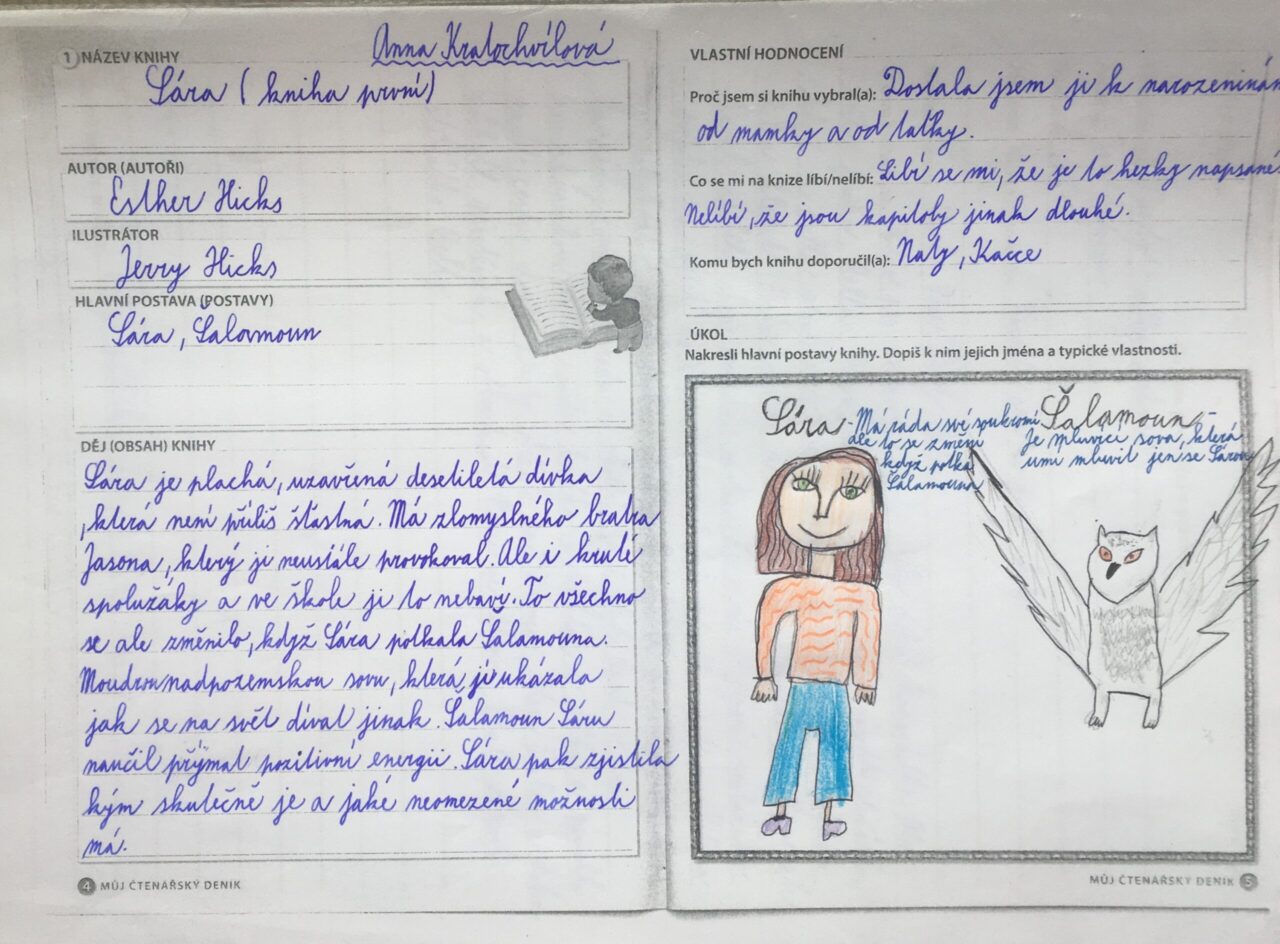 Anna Kratochvílová
1 NÁZEV KNIHY
Sára (kniha první)
AUTOR (AUTOŘI)
Esther Hicks
ILUSTRÁTOR
Jerry Hicks
HLAVNÍ POSTAVA (POSTAVY)
Sára, Šalamoun
DĚJ (OBSAH) KNIHY
Sára je plachá, uzavřená desetiletá dívka
,která není příliš šťastná. Má zlomyslného bratra
Jasona, který ji neustále provokoval. Ale i kruté
spolužáky a ve škole ji to nebaví. To všechno
se ale změnilo, když Sára potkala Šalamouna.
Moudrou nadpozemskou sovu, která jí ukázala
jak se na svět dívat jinak. Šalamoun Sáru
naučil příjmat pozitivní energii. Sára pak zjistila
kým skutečně je a jaké neomezené možnosti
má.
4 MŮJ ČTENÁŘSKÝ DENÍK
VLASTNÍ HODNOCENÍ
Proč jsem si knihu vybral(a): Dostala jsem ji k narozeninám
od mamky a od taťky.
Co se mi na knize líbí/nelíbí: Líbí se mi, že je to hezky napsané.
Nelíbí, že jsou kapitoly jinak dlouhé.
Komu bych knihu doporučil(a): Naty, Kačce
ÚKOL
Nakresli hlavní postavy knihy. Dopiš k nim jejich jména a typické vlastnosti.
Sára - Má ráda své soukromí
ale to se změní
když potká
Šalamouna
Šalamoun -
Je mluvící sova, která
umí mluvit jen se Sárou
MŮJ ČTENÁŘSKÝ DENÍK 5